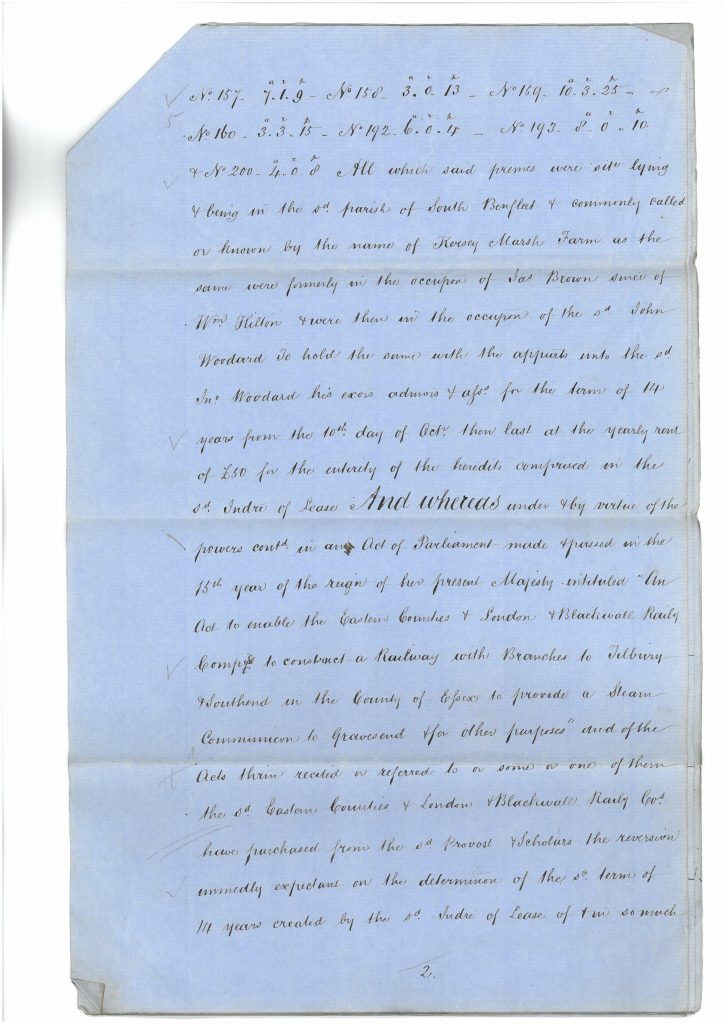 No 157. 7.1.9 - No 158. 3.0.13 - No 159. 10.3.25 -
No 160 - 3.3.15 - No 192. 6.0.4 - No 193. 8.0.10
& No 200. 4.0.8 All which said premes were site lying
& being in the sd parish of South Benfleet & commonly called
or known by the name of Kersey Marsh Farm as the
same were formerly in the occupon of Jas Brown since of
Wm Hilton & were then in the occupon of the sd John
Woodard To hold the same with the appurts unto the sd
Jno Woodard his exors admors & asss for the term of 14
years from the 10th day of Octr then last at the yearly rent
of £50 for the entirety of the heredits comprised in the
sd Indre of Lease And whereas under & by virtue of the
powers contd in an Act of Parliament made & passed in the
15th year of the reign of her present Majesty intituled "An
Act to enable the Eastern Counties & London & Blackwall Raily
Compys to construct a Railway with Branches to Tilbury
& Southend in the County of Essex to provide a Steam
Communicon to Gravesend & for other purposes" and of the
Acts thrin recited or referred to or some or one of them
the sd Eastern Counties & London & Blackwall Raily Cos
have purchased from the sd Provost & Scholars the reversion
immedly expectant on the determinon of the sd term of
14 years created by the sd Indre of Lease of & in so much
2.